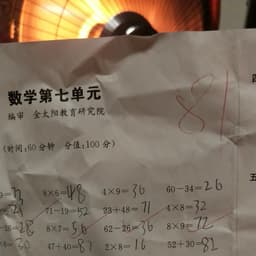 数学第七单元
81
编审 金太阳教育研究院
(时间:60分钟 分值:100分)
8×6=48 4×9=36 60-34=26
71-19=52 23+48=71 4×8=32
8×7=56 62-26=36 8×9=72
47+40=87 2×8=16 52+30=82